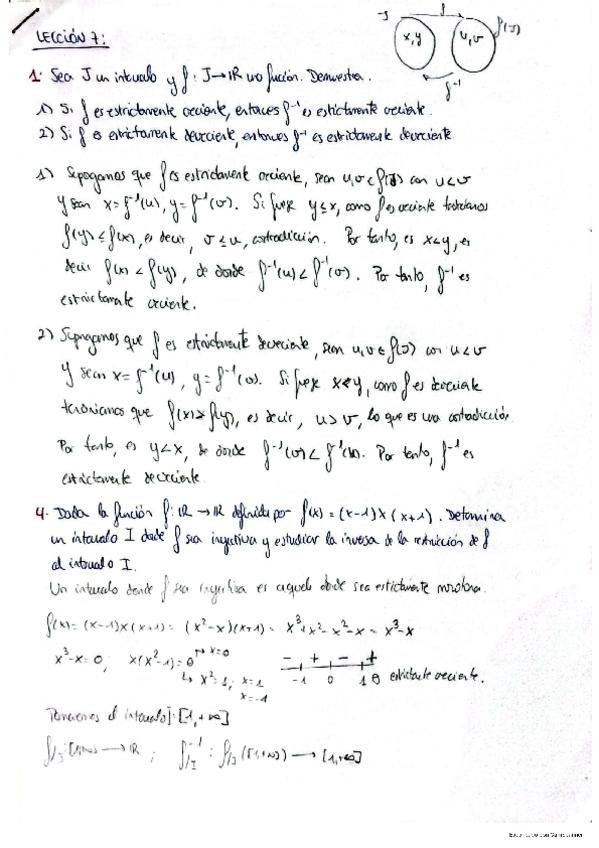 LECCIÓN 7:
J f f(J)
x,y u,v
f⁻¹
1. Sea J un intervalo y f: J→IR una función. Demuestra.
1) Si f es estrictamente creciente, entonces f⁻¹ es estrictamente creciente.
2) Si f es estrictamente decreciente, entonces f⁻¹ es estrictamente decreciente
1) Supongamos que f es estrictamente creciente, sean u,v ∈ f(J) con u<v
y sean x = f⁻¹(u), y = f⁻¹(v). Si fuese y≤x, como f es creciente tendríamos
f(y) ≤ f(x), es decir, v ≤ u, contradicción. Por tanto, es x<y, es
decir f(x) < f(y), de donde f⁻¹(u) < f⁻¹(v). Por tanto, f⁻¹ es
estrictamente creciente.
2) Supongamos que f es estrictamente decreciente, sean u,v ∈ f(J) con u<v
y sean x = f⁻¹(u), y = f⁻¹(v). Si fuese x<y, como f es decreciente
tendríamos que f(x) > f(y), es decir, u > v, lo que es una contradicción.
Por tanto, es y<x, de donde f⁻¹(v) < f⁻¹(u). Por tanto, f⁻¹ es
estrictamente decreciente.
4. Dada la función f: IR → IR definida por f(x) = (x-1)x(x+1). Determina
un intervalo I donde f sea inyectiva y estudiar la inversa de la restricción de f
al intervalo I.
Un intervalo donde f sea inyectiva es aquel donde sea estrictamente monótona.
f(x) = (x-1)x(x+1) = (x²-x)(x+1) = x³+x²-x²-x = x³-x
x³-x=0; x(x²-1)=0 ↦ x=0 - + - +
↳ x²=1; x=1 -1 0 1 estrictamente creciente.
x=-1
Tomamos el intervalo J: [1,+∞]
f/J: [1,+∞) → IR ; f⁻¹/I : f/J([1,+∞)) → [1,+∞]